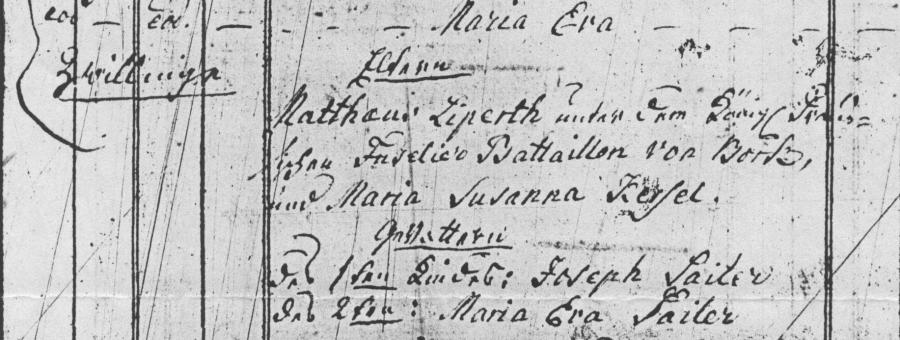 eod. — eod. — — — Maria Eva — — — —
Zwillinge
Eltern
Matthaeus Liperth unter dem Königl. Preus=
sischen Fuselier Battaillon von Bork,
und Maria Susanna Kessel.
Gevattern
des 1sten Kindes: Joseph Sailer
des 2ten: Maria Eva Sailer